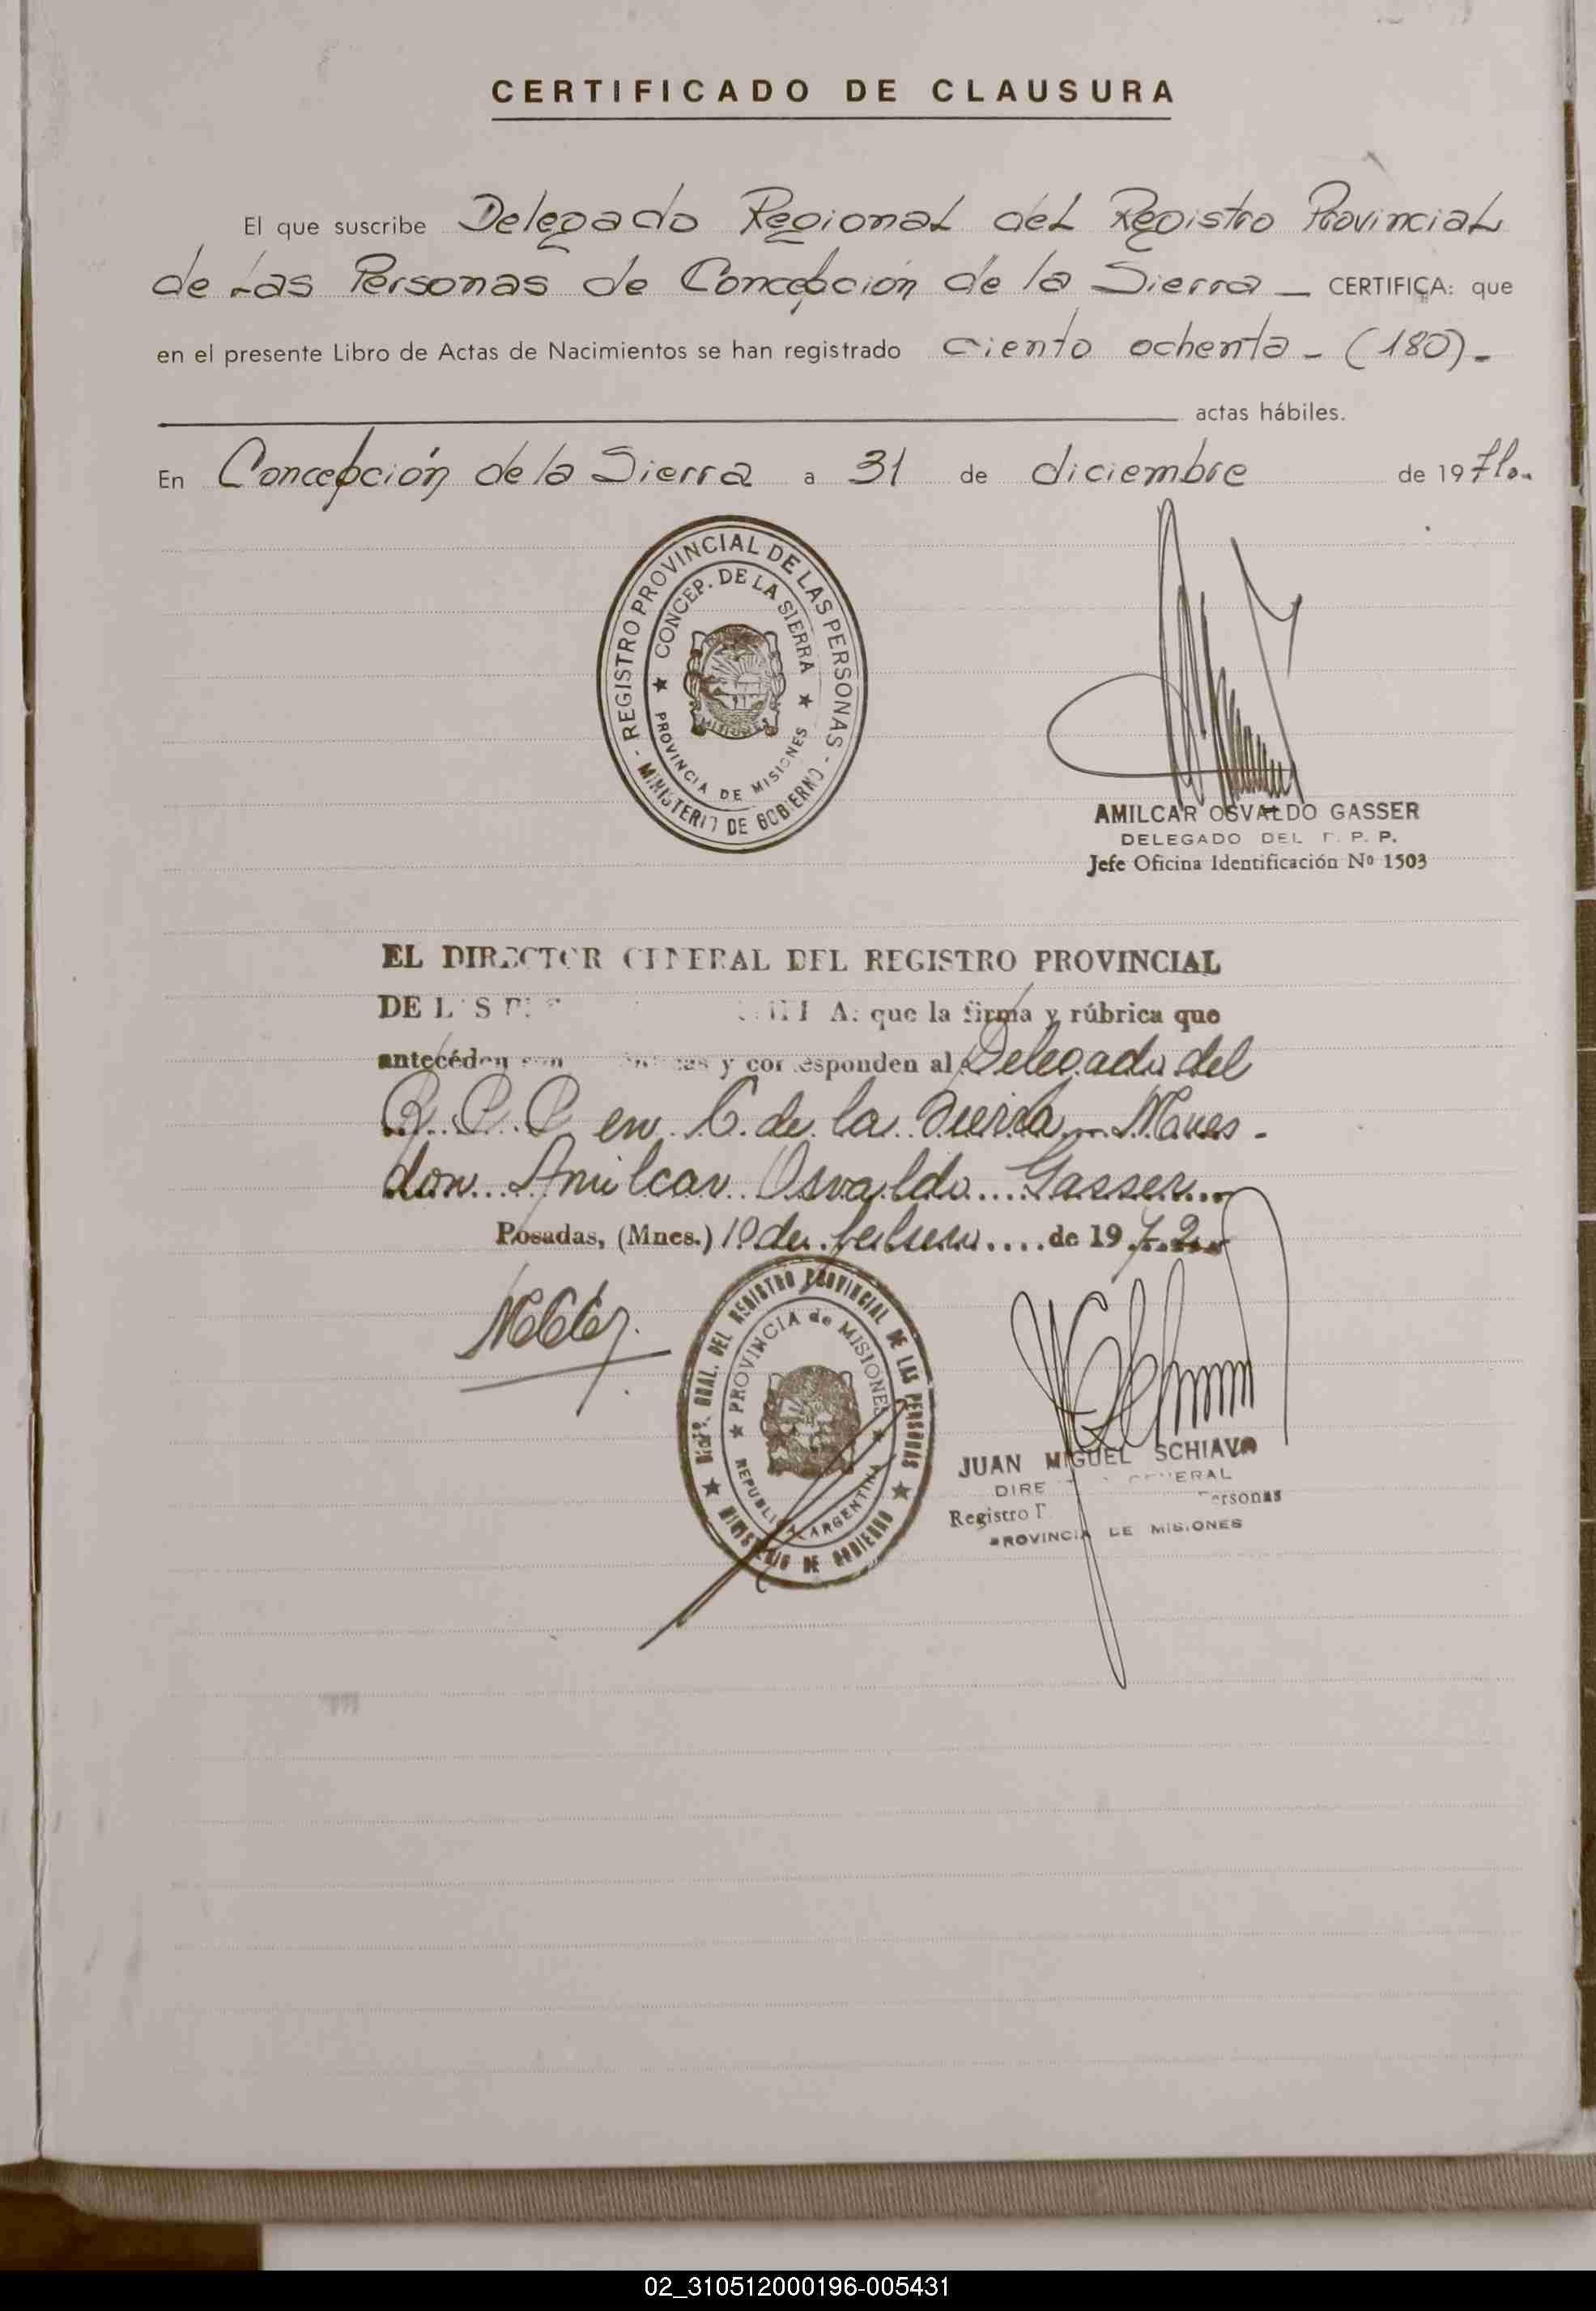 CERTIFICADO DE CLAUSURA
El que suscribe Delegado Regional del Registro Provincial
de Las Personas de Concepción de la Sierra _ CERTIFICA: que
en el presente Libro de Actas de Nacimientos se han registrado ciento ochenta - (180) -
actas hábiles.
En Concepción de la Sierra a 31 de diciembre de 19 71
- REGISTRO PROVINCIAL DE LAS PERSONAS -
MINISTERIO DE GOBIERNO
★ CONCEP. DE LA SIERRA ★
PROVINCIA DE MISIONES
MISIONES
AMILCAR OSVALDO GASSER
DELEGADO DEL P. P.
Jefe Oficina Identificación Nº 1503
EL DIRECTOR GENERAL DEL REGISTRO PROVINCIAL
DE que la firma y rúbrica que
anteceden y corresponden al Delegado del
R. P. P en C. de la Sierra - Mnes -
don Amilcar Osvaldo Gasser
Posadas, (Mnes.) 10 de febrero de 1972
DIREC. GRAL. DEL REGISTRO PROVINCIAL DE LAS PERSONAS
★ MINISTERIO DE GOBIERNO ★
★ PROVINCIA de MISIONES ★
REPUBLICA ARGENTINA
JUAN MIGUEL SCHIAVO
DIRE GENERAL
Registro Personas
PROVINCIA DE MISIONES
02_310512000196-005431